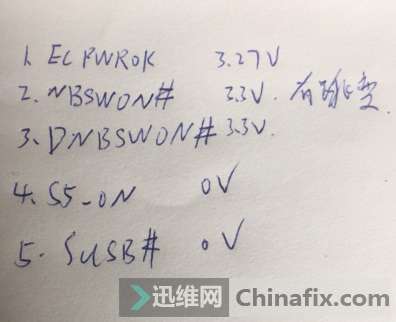 1. ECPWROK 3.27V
2. NBSWON# 3.3V. 有跳变.
3. DNBSWON# 3.3V.
4. S5-ON 0V
5. SUSB# 0V
迅维网 Chinafix.com